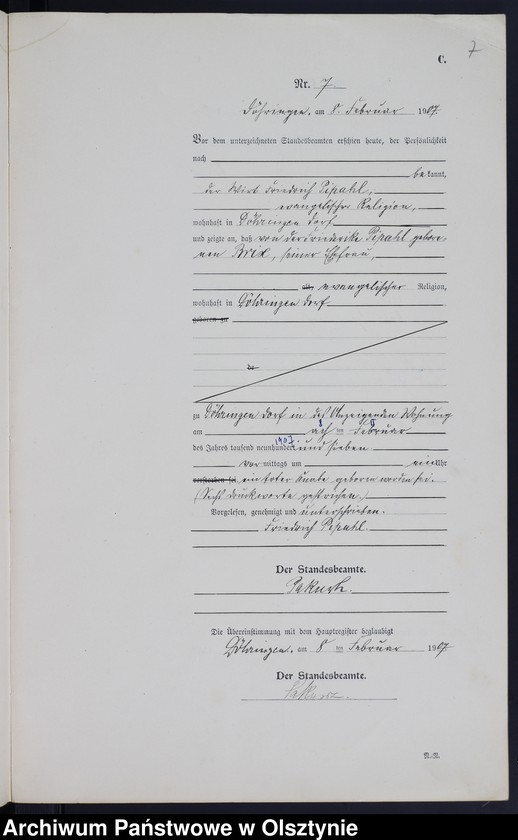 7
C.
Nr. 7
Döhringen, am 8. Februar 1907.
Vor dem unterzeichneten Standesbeamten erschien heute, der Persönlichkeit
nach
bekannt,
der Wirt Friedrich Pipahl,
evangelischer Religion,
wohnhaft in Döhringen Dorf
und zeigte an, daß von der Friederike Pipahl gebore-
nen Brix, seiner Ehefrau,
alt, evangelischer Religion,
wohnhaft in Döhringen Dorf
geboren zu
zu Döhringen Dorf in des Anzeigenden Wohnung
8 II
am acht ten Februar
1907.
des Jahres tausend neunhundert und sieben
vor mittags um ein Uhr
verstorben sei ein toter Knabe geboren worden sei.
(Sechs Druckworte gestrichen.)
Vorgelesen, genehmigt und unterschrieben.
Friedrich Pipahl.
Der Standesbeamte.
Die Übereinstimmung mit dem Hauptregister beglaubigt
Döhringen, am 8 ten Februar 1907
Der Standesbeamte.
N.N.
Archiwum Państwowe w Olsztynie